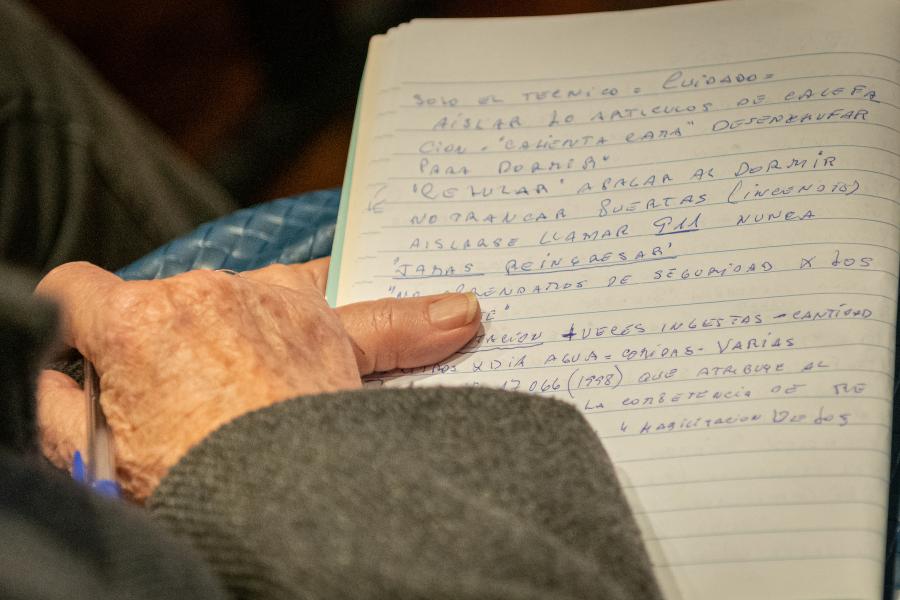 SOLO EL TECNICO = CUIDADO =
AISLAR LO ARTICULOS DE CALEFA
CION - "CALIENTA CAMA" DESENCHUFAR
PARA DORMIR"
"CELULAR" APAGAR AL DORMIR
NO TRANCAR PUERTAS (INCENDIO)
AISLARSE LLAMAR 911 NUNCA
"JAMAS REINGRESAR"
DE SEGURIDAD X LOS
TE"
TACION 4 VECES INGESTAS - CANTIDAD
X DIA AGUA = COMIDAS - VARIAS
17066 (1998) QUE ATRIBUYE AL
LA COMPETENCIA DE RE
HABILITACION DE LOS